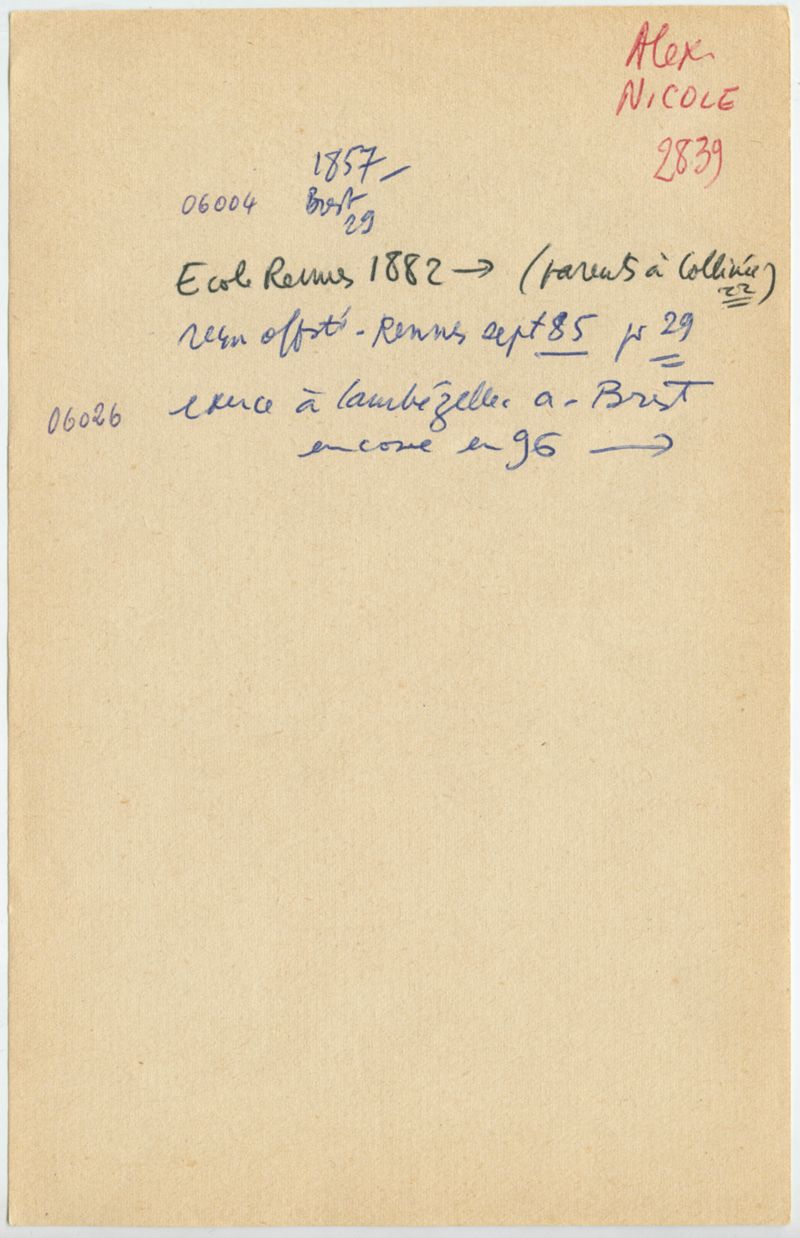 Alex.
NICOLE
2839
1857 –
06004 Brest
29
Ecole Rennes 1882 → (parents à Collinée)
22
reçu offsté - Rennes sept 85 pr 29
06026 exerce à Lambézellec a - Brest
encore en 96 →